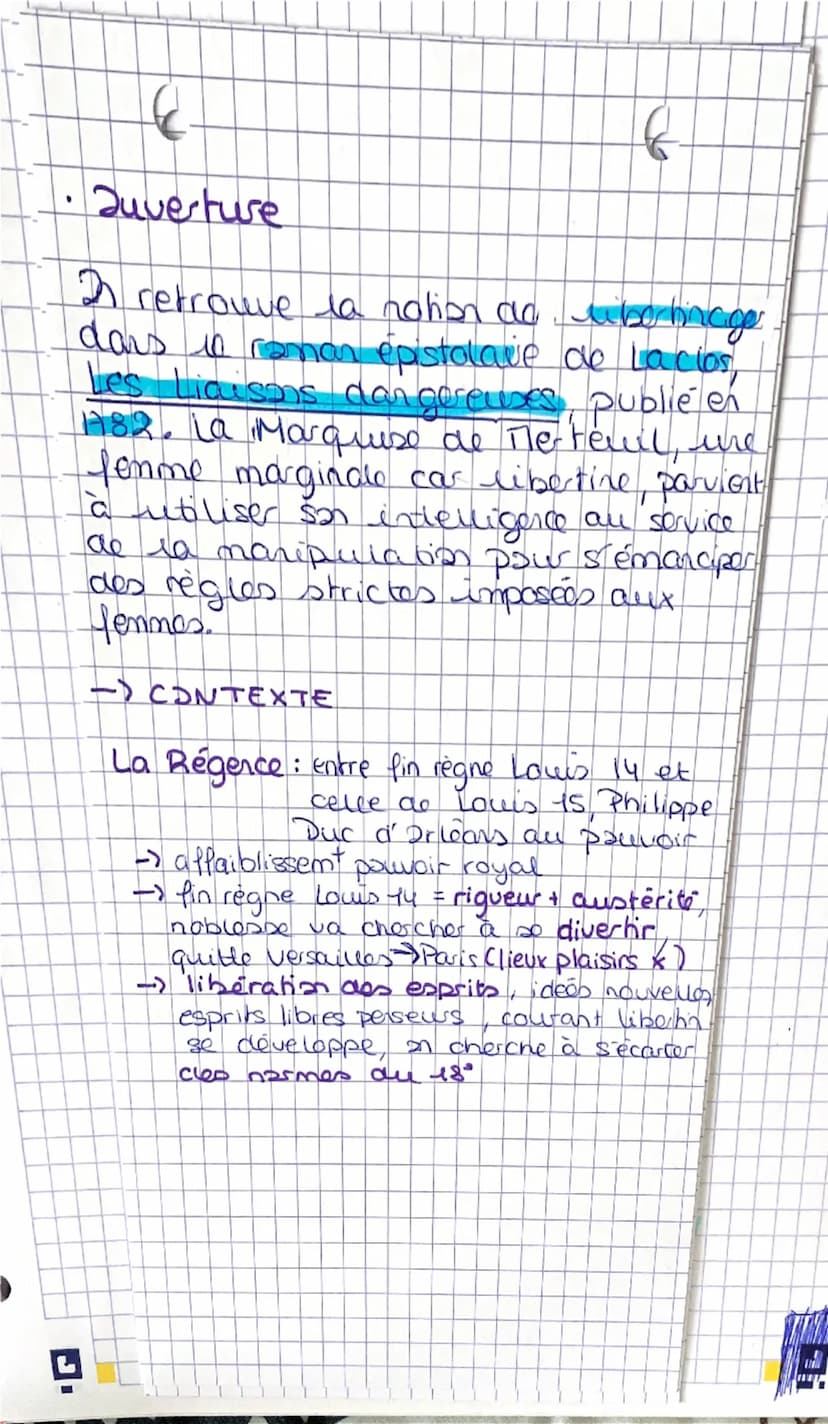 · Ouverture
On retrouve la notion de libertinage
dans le roman épistolaire de Laclos,
Les Liaisons dangereuses, publié en
1782. La Marquise de Merteuil, une
femme marginale car libertine, parvient
à utiliser son intelligence au service
de la manipulation pour s'émanciper
des règles strictes imposées aux
femmes.
-> CONTEXTE
La Régence : entre fin règne Louis 14 et
celle de Louis 15, Philippe
Duc d'Orléans au pouvoir
-> affaiblissemt pouvoir royal
-> fin règne Louis 14 = rigueur + austérité,
noblesse va chercher à se divertir,
quitte Versailles -> Paris (lieux plaisirs
-> libération des esprits, idées nouvelles,
esprits libres penseurs, courant libertin
se développe, on cherche à s'écarter
des normes du 18°